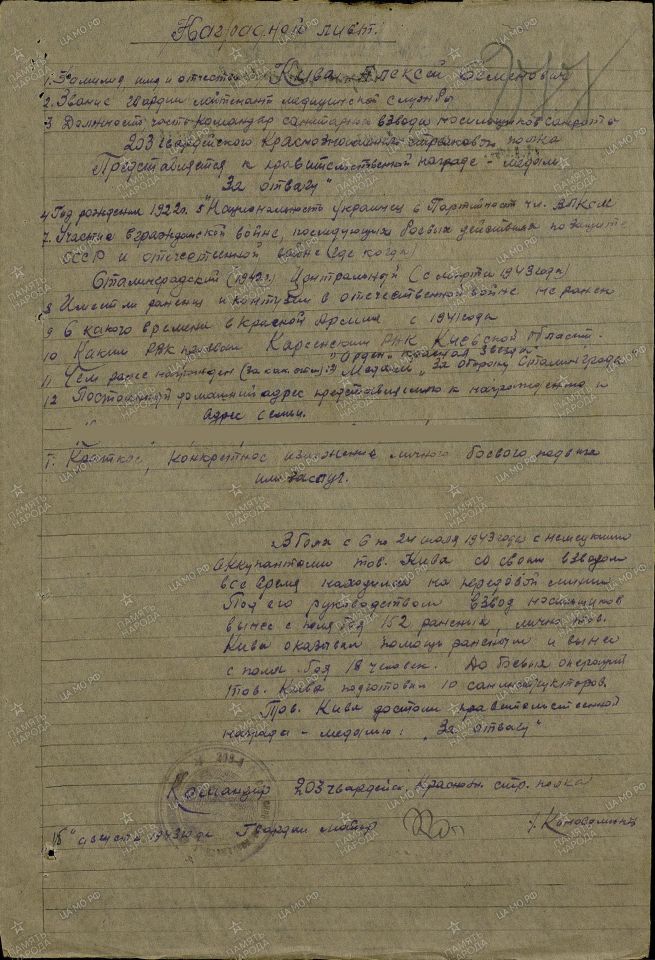 Наградной лист.
1. Фамилия, имя и отчество Кива Алексей Семенович
2. Звание гвардии лейтенант медицинской службы
3 Должность часть командир санитарного взвода носильщиков санроты
203 гвардейского Краснознаменного стрелкового полка
Представляется к правительственной награде - медаль
"За отвагу"
4 Год рождения 1922г. 5 Национальность украинец 6 Партийность чл. ВЛКСМ
7. Участие в гражданской войне, последующих боевых действиях по защите
СССР и отечественной войне (где когда)
Сталинградский (1942г.) Центральной (с марта 1943 года)
8 Имеет ли ранения и контузии в отечественной войне не ранен
9 С какого времени в Красной Армии с 1941 года
10 Каким РВК призван Киевской област.
"Орден" Красная Звезда.
11 Чем ранее награжден Медаль "За оборону Сталинграда
12 Постоянный домашний адрес представляемого к награждению и
адрес семьи.
1. Краткое, конкретное изложение личного боевого подвига
или заслуг.
В боях с 6 по 24 июля 1943 года с немецкими
оккупантами тов. Кива со своим взводом
все время находился на передовой линии
Под его руководством взвод носильщиков
вынес с поля боя 152 раненых, лично тов.
Кива оказывал помощь раненым и вынес
с поля боя 18 человек. До боевых операций
тов. Кива подготовил 10 санинструкторов.
Тов. Кива достоин правительственной
награды - медалью: "За отвагу"
Командир 203 гвардейск. Краснозн. стр. полка
августа 1943 года Гвардии майор
ПАМЯТЬ НАРОДА
ЦАМО.РФ